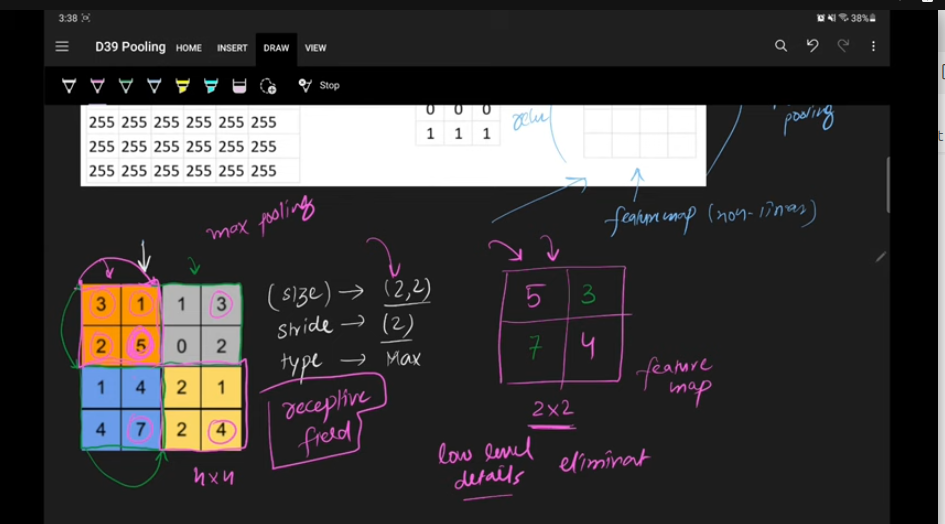 3:38 38%
D39 Pooling HOME INSERT DRAW VIEW
Stop
0 0 0
255 255 255 255 255 255
1 1 1
relu
pooling
255 255 255 255 255 255
255 255 255 255 255 255
feature map (non-linear)
max pooling
3 1 1 3
2 5 0 2
1 4 2 1
4 7 2 4
4x4
(size) → (2,2)
stride → (2)
type → Max
receptive
field
5 3
7 4
2x2
feature
map
low level
details
eliminat